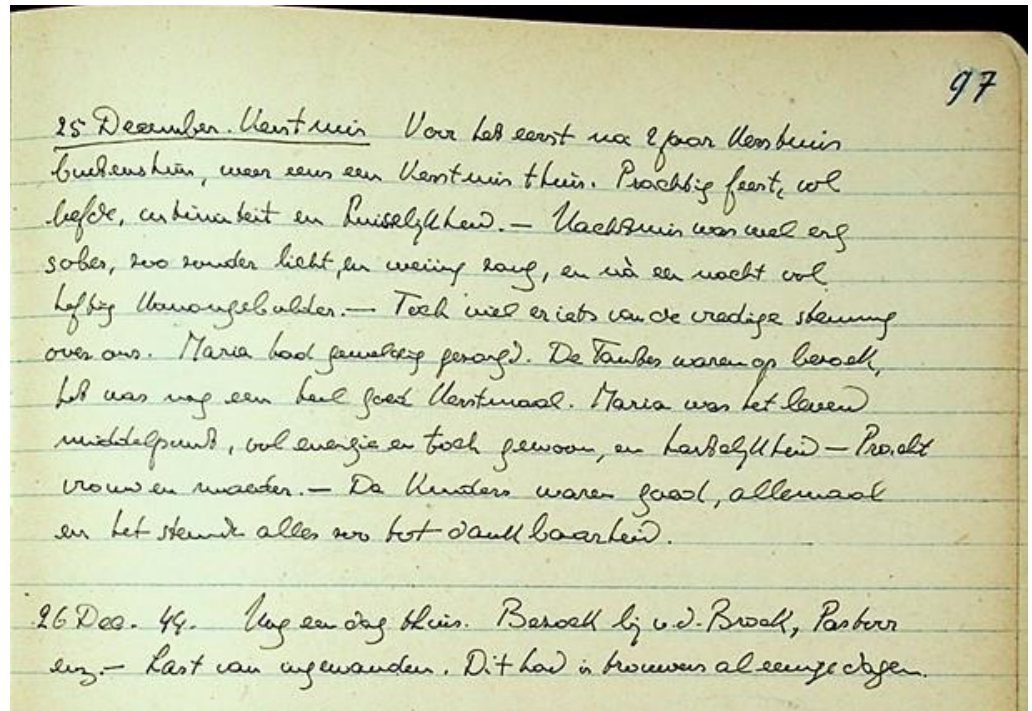 97
25 December. Kerstmis Voor het eerst na 2 jaar Kerstmis
buitenshuis, weer eens een Kerstmis thuis. Prachtig feest, vol
liefde, intimiteit en huiselijkheid. — Nachtmis was wel erg
sober, zoo zonder licht, en weinig zang, en nà een nacht vol
heftig kanongebulder. — Toch viel er iets van de vredige stemming
over ons. Maria had geweldig gezorgd. De Tantes waren op bezoek,
het was nog een heel goed Kerstmaal. Maria was het levend
middelpunt, vol energie en toch gewoon, en hartelijkheid — Pracht
vrouw en moeder. — De Kinders waren goed, allemaal
en het stemde alles zoo tot dankbaarheid.
26 Dec. 44. Nog een dag thuis. Bezoek bij v.d. Broek, Pastoor
enz. — Last van ingewanden. Dit had ik trouwens al eenige dagen.